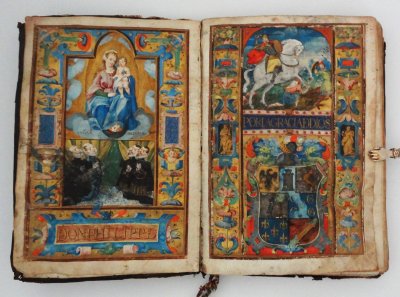 DON PHILIPPE
POR LA GRACIA D DIOS